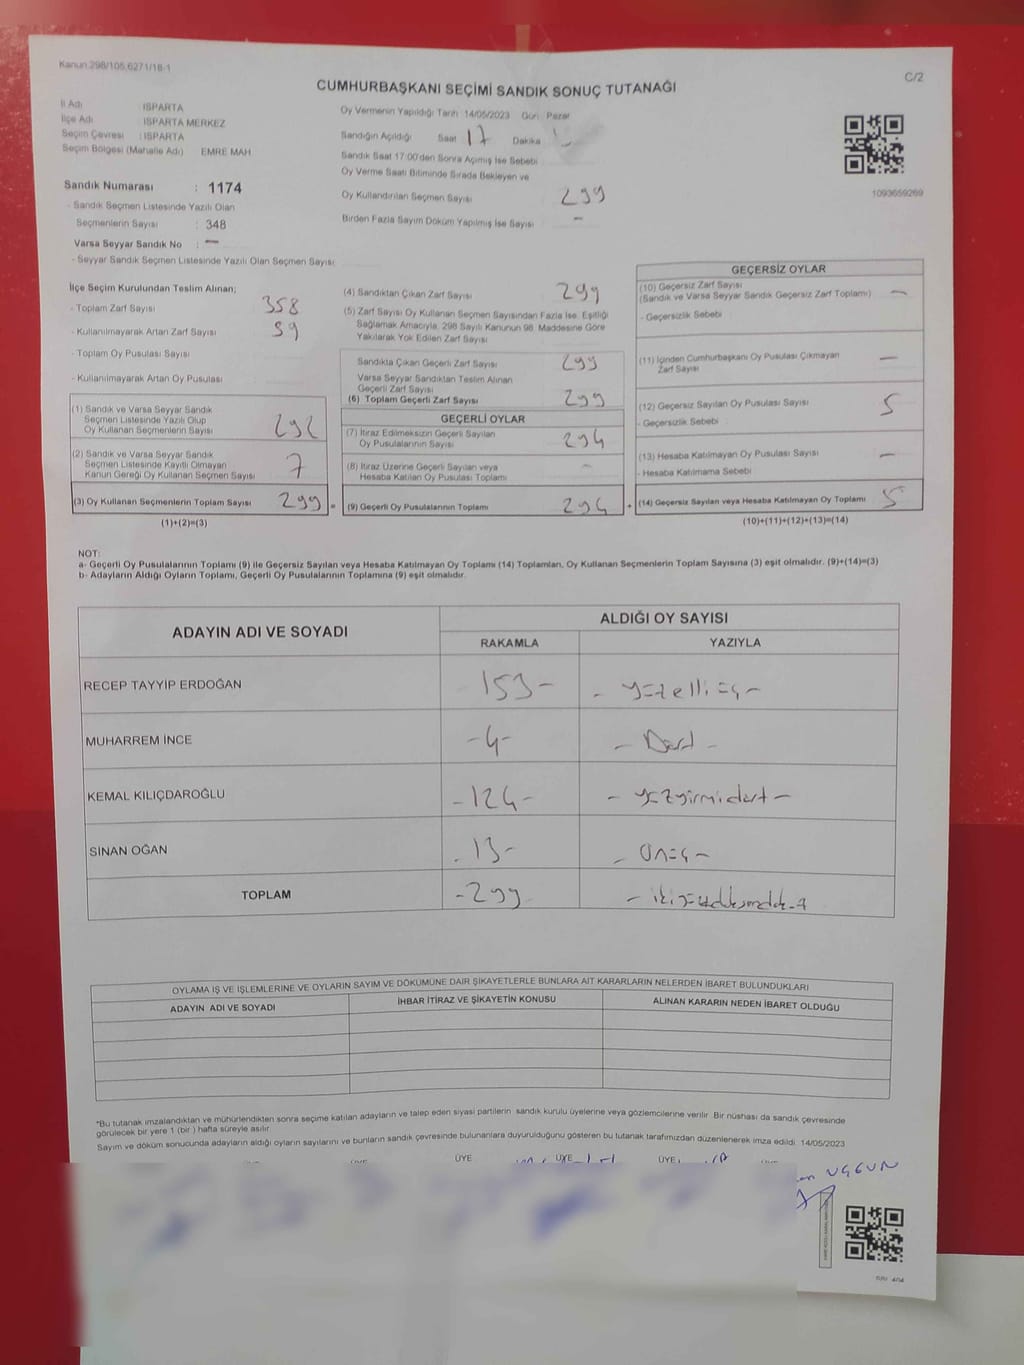 Kanun:298/105,6271/18-1
C/2
CUMHURBAŞKANI SEÇİMİ SANDIK SONUÇ TUTANAĞI
İl Adı ISPARTA
İlçe Adı ISPARTA MERKEZ
Seçim Çevresi : ISPARTA
Seçim Bölgesi (Mahalle Adı) EMRE MAH
Sandık Numarası : 1174
- Sandık Seçmen Listesinde Yazılı Olan
Seçmenlerin Sayısı : 348
Varsa Seyyar Sandık No : —
- Seyyar Sandık Seçmen Listesinde Yazılı Olan Seçmen Sayısı:
Oy Vermenin Yapıldığı Tarih 14/05/2023 Gün: Pazar
Sandığın Açıldığı Saat 17 Dakika
Sandık Saat 17:00'den Sonra Açımış İse Sebebi
Oy Verme Saati Bitiminde Sırada Bekleyen ve
Oy Kullandırılan Seçmen Sayısı 299
Birden Fazla Sayım Döküm Yapılmış İse Sayısı –
1093659269
İlçe Seçim Kurulundan Teslim Alınan;
- Toplam Zarf Sayısı 358
- Kullanılmayarak Artan Zarf Sayısı 59
- Toplam Oy Pusulası Sayısı
- Kullanılmayarak Artan Oy Pusulası
(1) Sandık ve Varsa Seyyar Sandık
Seçmen Listesinde Yazılı Olup
Oy Kullanan Seçmenlerin Sayısı 292
(2) Sandık ve Varsa Seyyar Sandık
Seçmen Listesinde Kayıtlı Olmayan
Kanun Gereği Oy Kullanan Seçmen Sayısı 7
(3) Oy Kullanan Seçmenlerin Toplam Sayısı 299 =
(1)+(2)=(3)
(4) Sandıktan Çıkan Zarf Sayısı 299
(5) Zarf Sayısı Oy Kullanan Seçmen Sayısından Fazla İse, Eşitliği
Sağlamak Amacıyla, 298 Sayılı Kanunun 98. Maddesine Göre
Yakılarak Yok Edilen Zarf Sayısı
Sandıkta Çıkan Geçerli Zarf Sayısı 299
Varsa Seyyar Sandıktan Teslim Alınan
Geçerli Zarf Sayısı
(6) Toplam Geçerli Zarf Sayısı 299
GEÇERLİ OYLAR
(7) İtiraz Edilmeksizin Geçerli Sayılan
Oy Pusulalarının Sayısı 294
(8) İtiraz Üzerine Geçerli Sayılan veya
Hesaba Katılan Oy Pusulası Toplamı –
(9) Geçerli Oy Pusulalarının Toplamı 294 +
GEÇERSİZ OYLAR
(10) Geçersiz Zarf Sayısı
(Sandık ve Varsa Seyyar Sandık Geçersiz Zarf Toplamı) —
- Geçersizlik Sebebi
(11) İçinden Cumhurbaşkanı Oy Pusulası Çıkmayan
Zarf Sayısı —
(12) Geçersiz Sayılan Oy Pusulası Sayısı 5
- Geçersizlik Sebebi
(13) Hesaba Katılmayan Oy Pusulası Sayısı –
- Hesaba Katılmama Sebebi
(14) Geçersiz Sayılan veya Hesaba Katılmayan Oy Toplamı 5
(10)+(11)+(12)+(13)=(14)
NOT:
a- Geçerli Oy Pusulalarının Toplamı (9) ile Geçersiz Sayılan veya Hesaba Katılmayan Oy Toplamı (14) Toplamları, Oy Kullanan Seçmenlerin Toplam Sayısına (3) eşit olmalıdır. (9)+(14)=(3)
b- Adayların Aldığı Oyların Toplamı, Geçerli Oy Pusulalarının Toplamına (9) eşit olmalıdır.
ADAYIN ADI VE SOYADI ALDIĞI OY SAYISI
RAKAMLA YAZIYLA
RECEP TAYYİP ERDOĞAN - 153 - - yüzelliüç -
MUHARREM İNCE - 4 - - Dört -
KEMAL KILIÇDAROĞLU - 124 - - yüzyirmidört -
SİNAN OĞAN - 13 - - Onüç -
TOPLAM - 299
OYLAMA İŞ VE İŞLEMLERİNE VE OYLARIN SAYIM VE DÖKÜMÜNE DAİR ŞİKAYETLERLE BUNLARA AİT KARARLARIN NELERDEN İBARET BULUNDUKLARI
ADAYIN ADI VE SOYADI İHBAR İTİRAZ VE ŞİKAYETİN KONUSU ALINAN KARARIN NEDEN İBARET OLDUĞU
*Bu tutanak imzalandıktan ve mühürlendikten sonra seçime katılan adayların ve talep eden siyasi partilerin sandık kurulu üyelerine veya gözlemcilerine verilir. Bir nüshası da sandık çevresinde
görülecek bir yere 1 (bir ) hafta süreyle asılır.
Sayım ve döküm sonucunda adayların aldığı oyların sayılarını ve bunların sandık çevresinde bulunanlara duyurulduğunu gösteren bu tutanak tarafımızdan düzenlenerek imza edildi. 14/05/2023
ÜYE ÜYE ÜYE
UYGUN